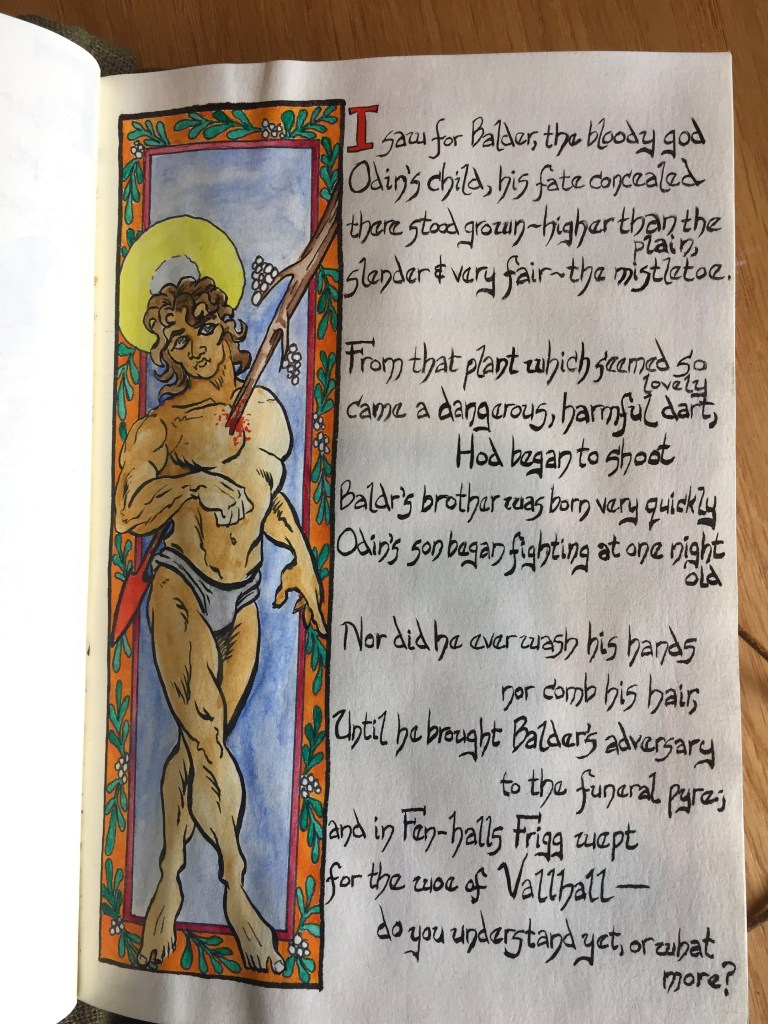 I saw for Balder, the bloody god
Odin's child, his fate concealed
there stood grown~higher than the
plain,
slender & very fair~the mistletoe.
From that plant which seemed so
lovely
came a dangerous, harmful dart,
Hod began to shoot
Baldr's brother was born very quickly
Odin's son began fighting at one night
old
Nor did he ever wash his hands
nor comb his hair,
Until he brought Balder's adversary
to the funeral pyre;
and in Fen-halls Frigg wept
for the woe of Vallhall—
do you understand yet, or what
more?